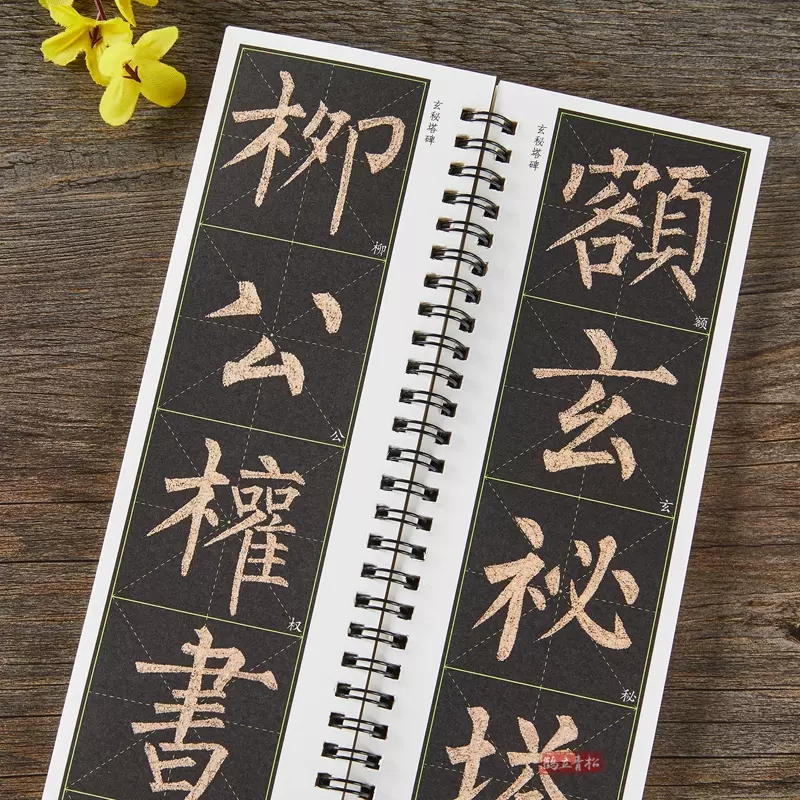 玄秘塔碑
柳
柳
公
公
權
权
書
玄秘塔碑
額
额
玄
玄
祕
秘
塔
鹤立青松